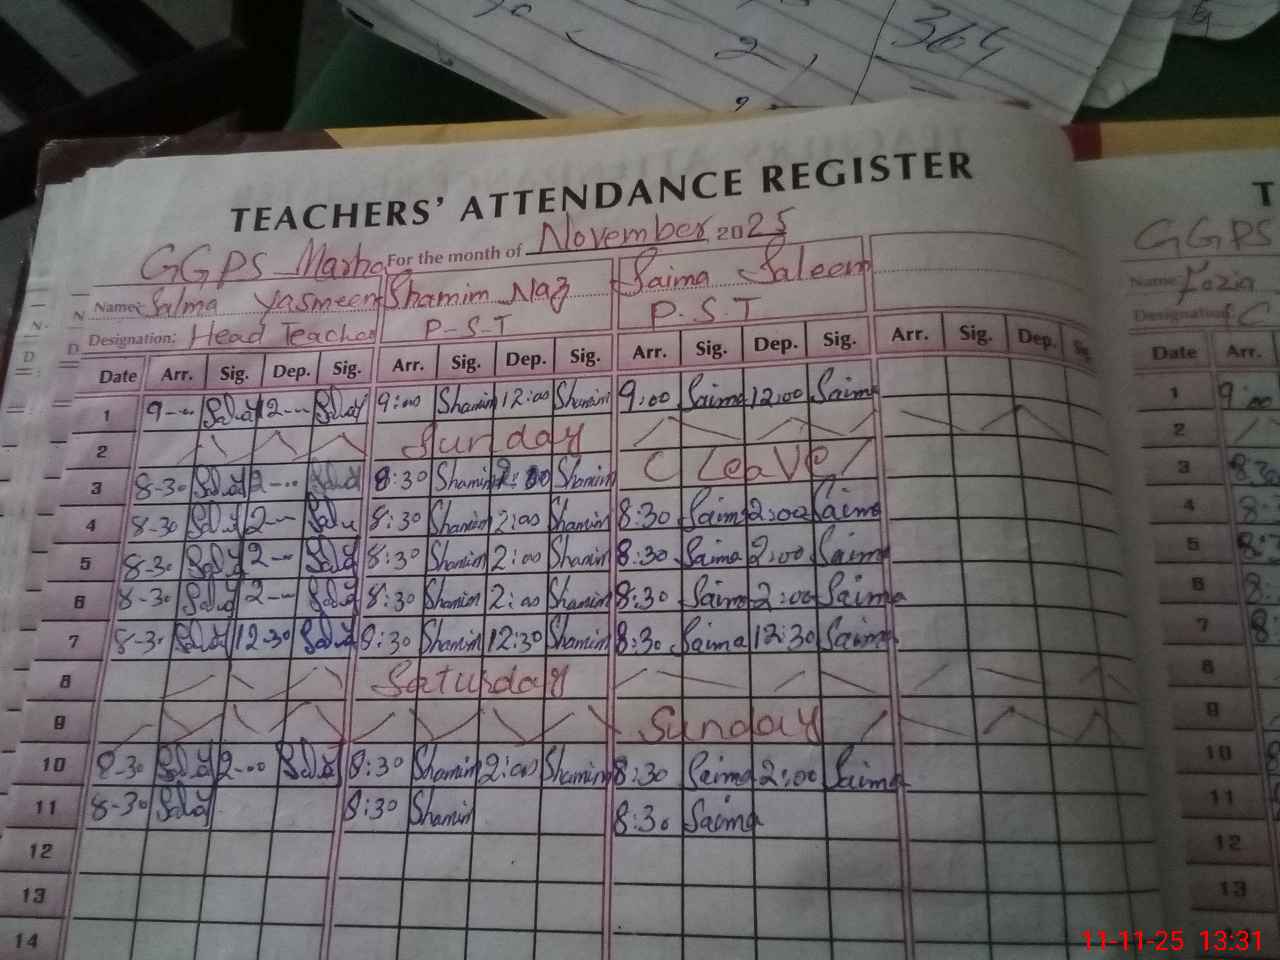 364
TEACHERS' ATTENDANCE REGISTER
GGPS Marha For the month of November 2025
Name: Salma Yasmeen Shamim Naz Saima Saleem
Designation: Head Teacher P-S-T P.S.T
Date Arr. Sig. Dep. Sig. Arr. Sig. Dep. Sig. Arr. Sig. Dep. Sig. Arr. Sig. Dep. Sig.
1 9-- 12-- 9:00 Shamim 12:00 Shamim 9:00 Saima 12:00 Saima
2 Sunday
3 8-30 2-- 8:30 Shamim 2:00 Shamim Leave
4 8-30 2-- 8:30 Shamim 2:00 Shamim 8:30 Saima 2:00 Saima
5 8-30 2-- 8:30 Shamim 2:00 Shamim 8:30 Saima 2:00 Saima
6 8-30 2-- 8:30 Shamim 2:00 Shamim 8:30 Saima 2:00 Saima
7 8-30 12-30 8:30 Shamim 12:30 Shamim 8:30 Saima 12:30 Saima
8 Saturday
9 Sunday
10 8-30 2-00 8:30 Shamim 2:00 Shamim 8:30 Saima 2:00 Saima
11 8-30 8:30 Shamim 8:30 Saima
12
13
14
T
GGPS
Name: Fozia
Designation:
Date Arr.
1 9:00
2
3 8:30
4
5
6
7
8
9
10
11
12
13
11-11-25 13:31